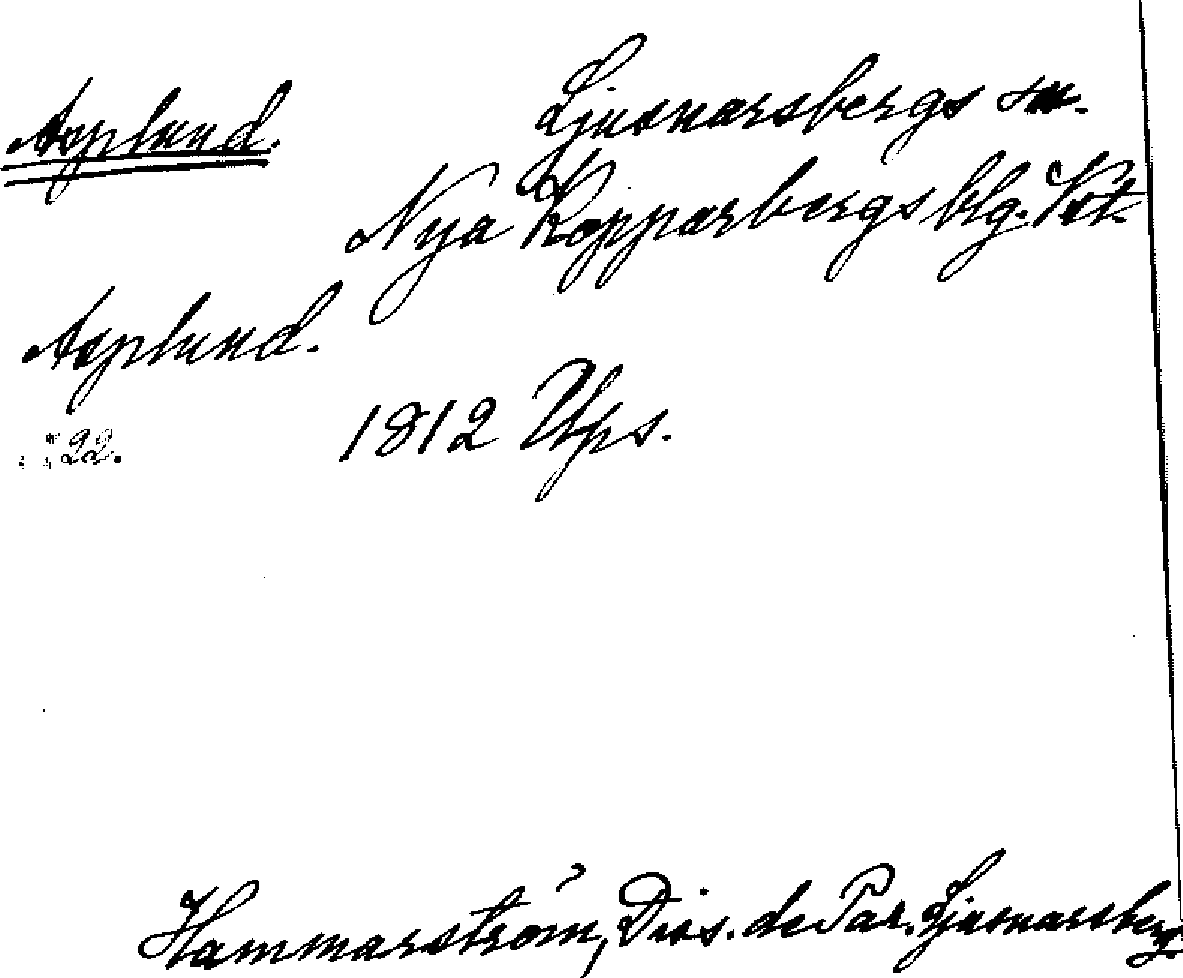 Asplund.
Ljusnarsbergs sn.
Nya Kopparbergs blg. Vstm.
Asplund.
22.
1812 Ups.
Hammarström, Diss. de Par. Ljusnarsberg.